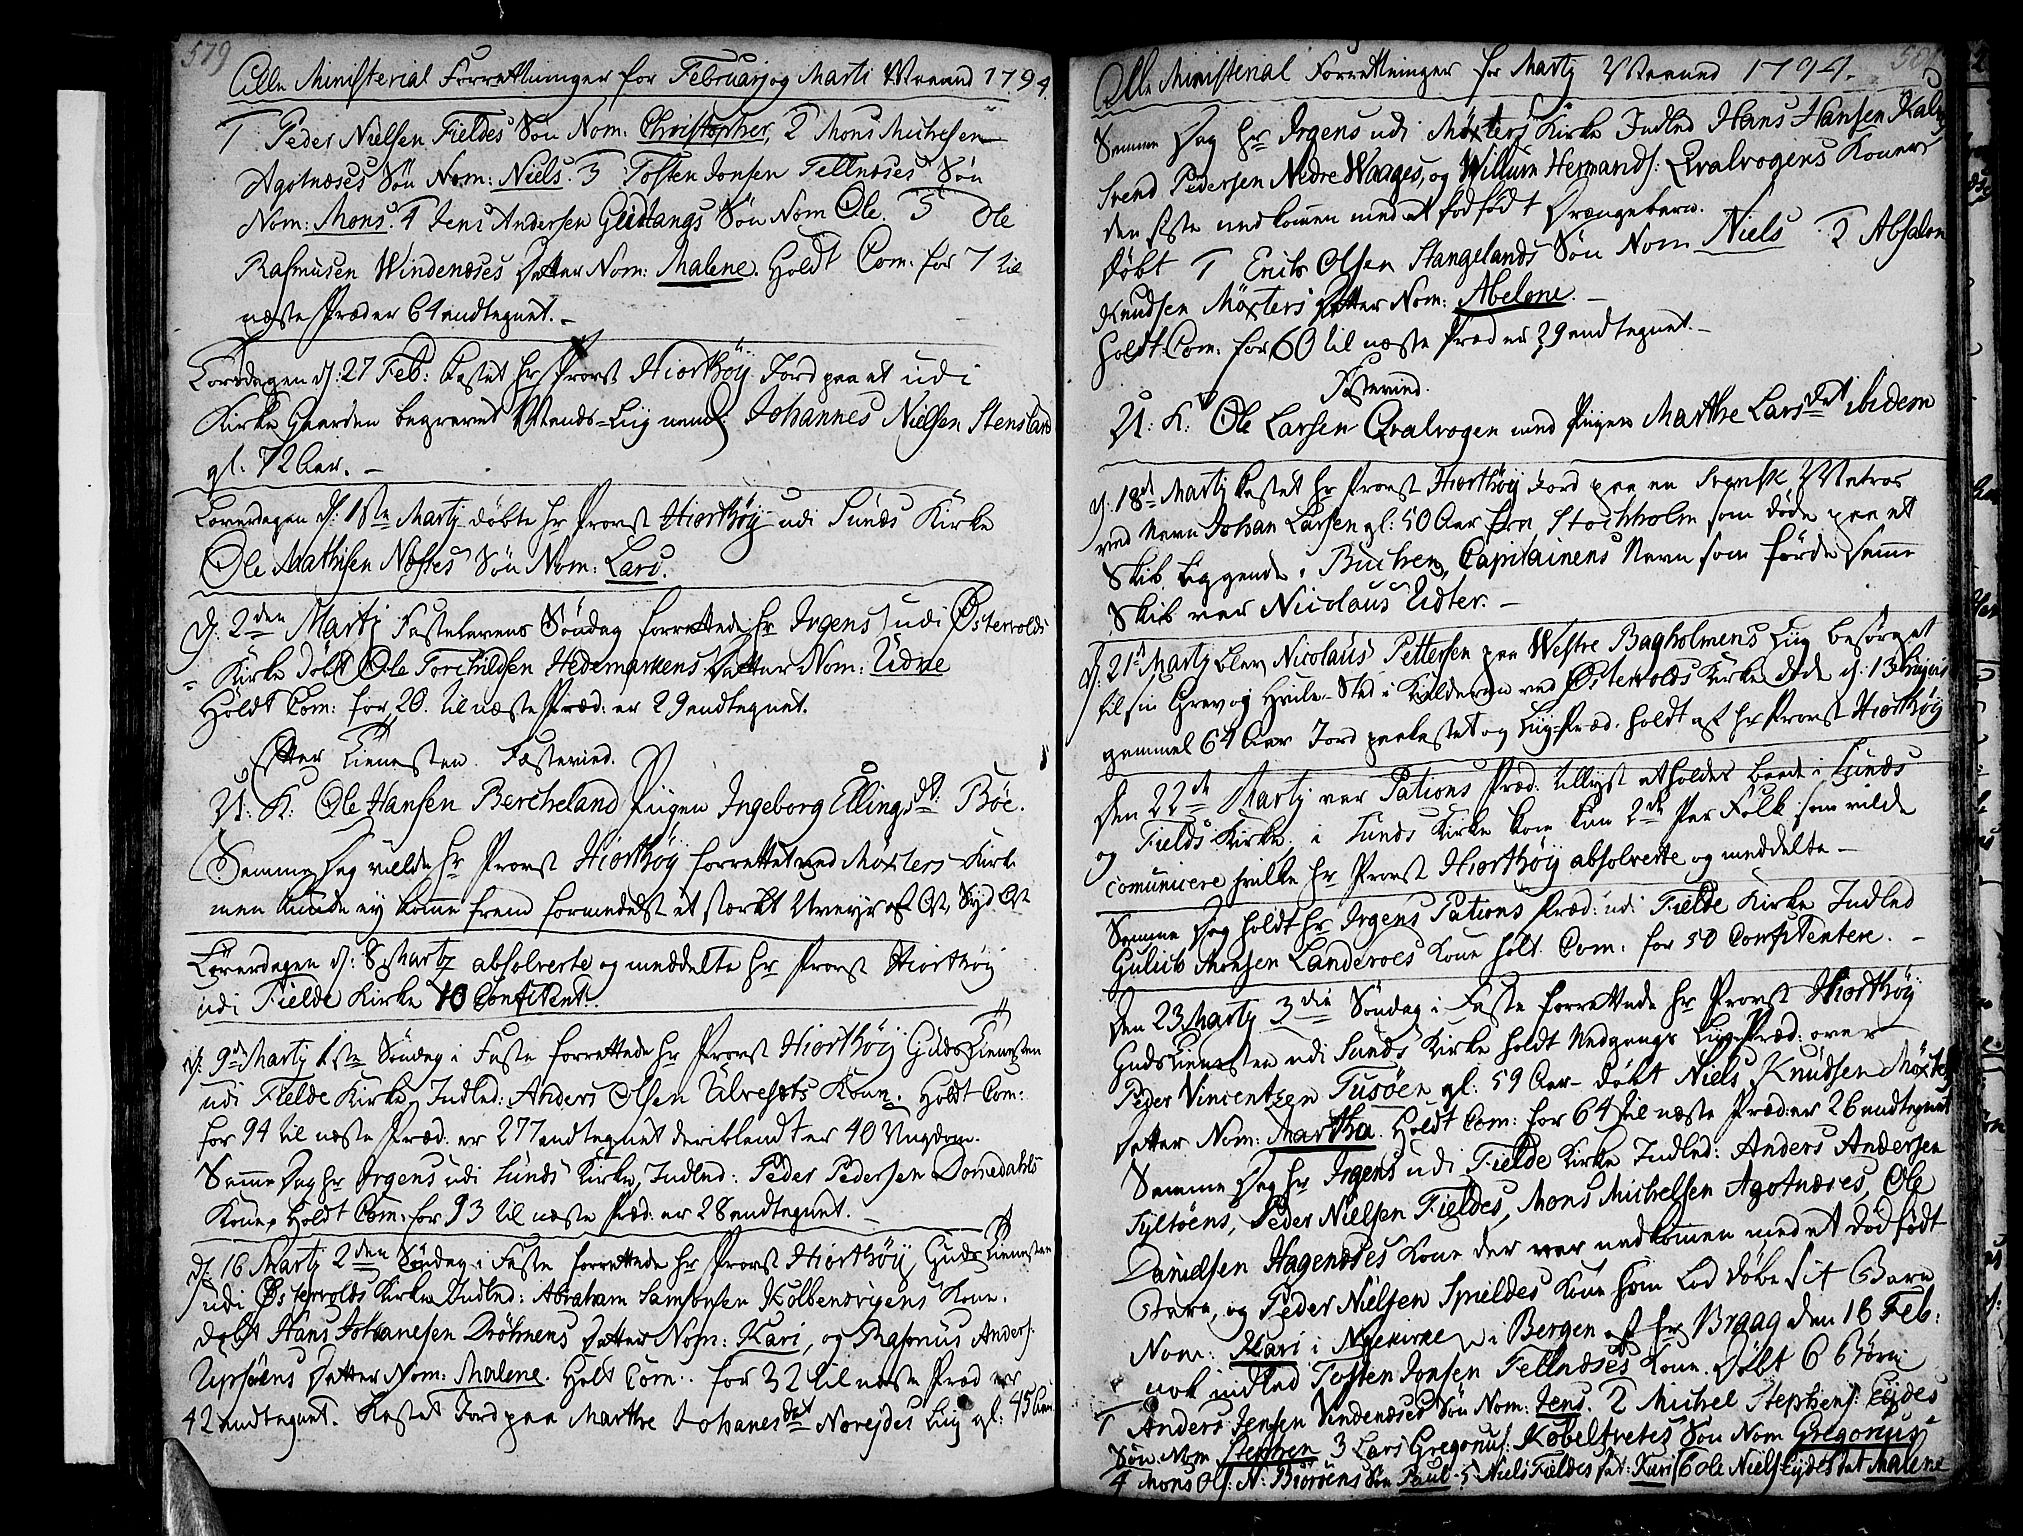 579
Alle Ministerial Forretninger for Februarj og Marti Maaned 1794
1 Peder Nielsen Fieldes Søn Nom: Christopher, 2 Mons Michelsen
Agotnæses Søn Nom: Niels. 3 Tosten Jonsen Tellnæses Søn
Nom: Mons. 4 Jens Andersen Gleitangs Søn Nom Ole. 5 Ole
Rasmusen Windenæses Datter Nom: Malene. Holdt Com: for 7 til
næste Præd er 64 andtegnet.
Torsdagen d: 27 Feb: kastet hr Provst Hiorthöÿ Jord paa et udi
Kirke Gaarden begravet Mands-Liig navnl: Johannes Nielsen Stensland
gl: 72 Aar.
Løverdagen d: 1ste Martj døbte hr Provst Hiorthöÿ udi Sunds Kirke
Ole Mathisen Næstes Søn Nom: Lars.
d: 2den Martj Fastelavens Søndag forrettede hr Irgens udi Østervolds
Kirke døbt Ole Torchildsen Hedemarkens Datter Nom: Udne
Holdt Com: for 20. til næste Præd: er 29 andtegnet.
Efter Tienesten Fæstevied.
U: K: Ole Hansen Bercheland Pigen Ingeborg Ellingsdt: Böe.
Samme Dag vilde hr Provst Hiorthöÿ forrettet ved Möxters Kirke
men kunde ey komme frem formedelst et stærkt Uveyr af Ost, Syd Ost
Løverdagen d: 8 Martj absolverte og meddelte hr Provst Hiorthöÿ
udi Fielde Kirke 10 Confitent:
d: 9de Martj 1ste Søndag i Faste forrettede hr Provst Hiorthöÿ Guds Tienesten
udi Fielde Kirke, Indled: Anders Olsen Ulvesæts Kone. Holdt Com:
for 94 til næste Præd: er 277 andtegnet deriblandt er 40 Ungdom.
Samme Dag hr Irgens udi Sunds Kirke, Indled: Peder Pedersen Dommedahls
Kone, Holdt Com: for 93 til næste Præd: er 28 andtegnet.
d: 16 Martj 2den Søndag i Faste forrettede hr Provst Hiorthöÿ Guds Tienesten
udi Østervolds Kirke Indled: Abraham Samsonsen Kolbensvigens Kone.
døbt Hans Johanesen Dröhnens Datter Nom: Kari, og Rasmus Anders:
Upsøens Datter Nom: Malene. Holdt Com: for 32 til næste Præd er
42 andtegnet. Kastet Jord paa Marthe Johanesdat Norejdes Liig gl: 45 Aar.
Alle Ministerial Forretninger for Martj Maaned 1794.
Samme Dag hr Irgens udi Möxters Kirke Indled Hans Hansen
Svend Pedersen Nedre Waages, og Willum Hermands: Qvalvogens Koner
den siste nedkommen med et dødfødt Drængebarn.
Døbt 1 Erich Olsen Stangelands Søn Nom Niels. 2 Absalon
Knudsen Möxters Datter Nom: Abelone.
Holdt Com: for 60 til næste Præd er 39 andtegnet.
Fæstevied.
U: K: Ole Larsen Qvalvogen med Pigen Marthe Larsdat ibidem
d: 18de Martj kastet hr Provst Hiorthöÿ Jord paa en Svensk Matros
ved Navn Johan Larsen gl: 50 Aar fra Stochholm som døde paa et
Skib liggende i Buchen, Capitainens Navn som förde samme
Skib var Nicolaus Eidter.
d: 21de Martj blev Nicolaus Pettersen paa Westre Bagholmens Liig besørget
til sin Grav og Hvile-Sted i Kielderen ved Østervolds Kirke døde d: 13 hujus
gammel 64 Aar Jord paakastet og Liig-Præd: holdt af hr Provst Hiorthöÿ
Den 22de Martj var Pations Præd: tillyst at holdes baade i Sunds
og Fields Kirke, i Sunds Kirke kom kun 2de Par Folk som vilde
comunicere hvilke hr Provst Hiorthöÿ absolverte og meddelte
Samme Dag holdt hr Irgens Pations Præd: udi Fielde Kirke Indled
Gulich Monsen Landeroes Kone holt Com: for 50 Confitentere.
Den 23 Martj 3die Søndag i Faste forrettede hr Provst Hiorthöÿ
Guds Tienesten udi Sunds Kirke holdt Nedgangs Liig-Præd: over
Peder Vincentsen Tusöen gl: 59 Aar døbt Niels Knudsen Möxters
Datter Nom: Martha. Holdt Com: for 64 til næste Præd: er 26 andtegnet
Samme Dag hr Irgens udi Fielde Kirke Indled: Anders Andersen
Syltøens, Peder Nielsen Fieldes, Mons Michelsen Agotnæses, Ole
Danielsen Hagenæses Kone der var nedkommen med et dødfødt
Barn, og Peder Nielsen Spieldes Kone som lod døbe sit Barn
Nom: Kari i Nyekirke i Bergen af hr Bragg den 16 Feb:
nok indled Tosten Jonsen Tellnæses Kone. Døbt 6 Børn
1 Anders Jensen Vindenæses Søn Nom: Jens. 2 Michel Stephens: Eydes
Søn Nom Stephen 3 Lars Gregorius: Kobeltvetes Søn Nom Gregorius
4 Mons Ols: N: Biorøens Søn Paul 5 Niels Fieldes Dat: Kari 6 Ole Niels: Eydes Dat Malene